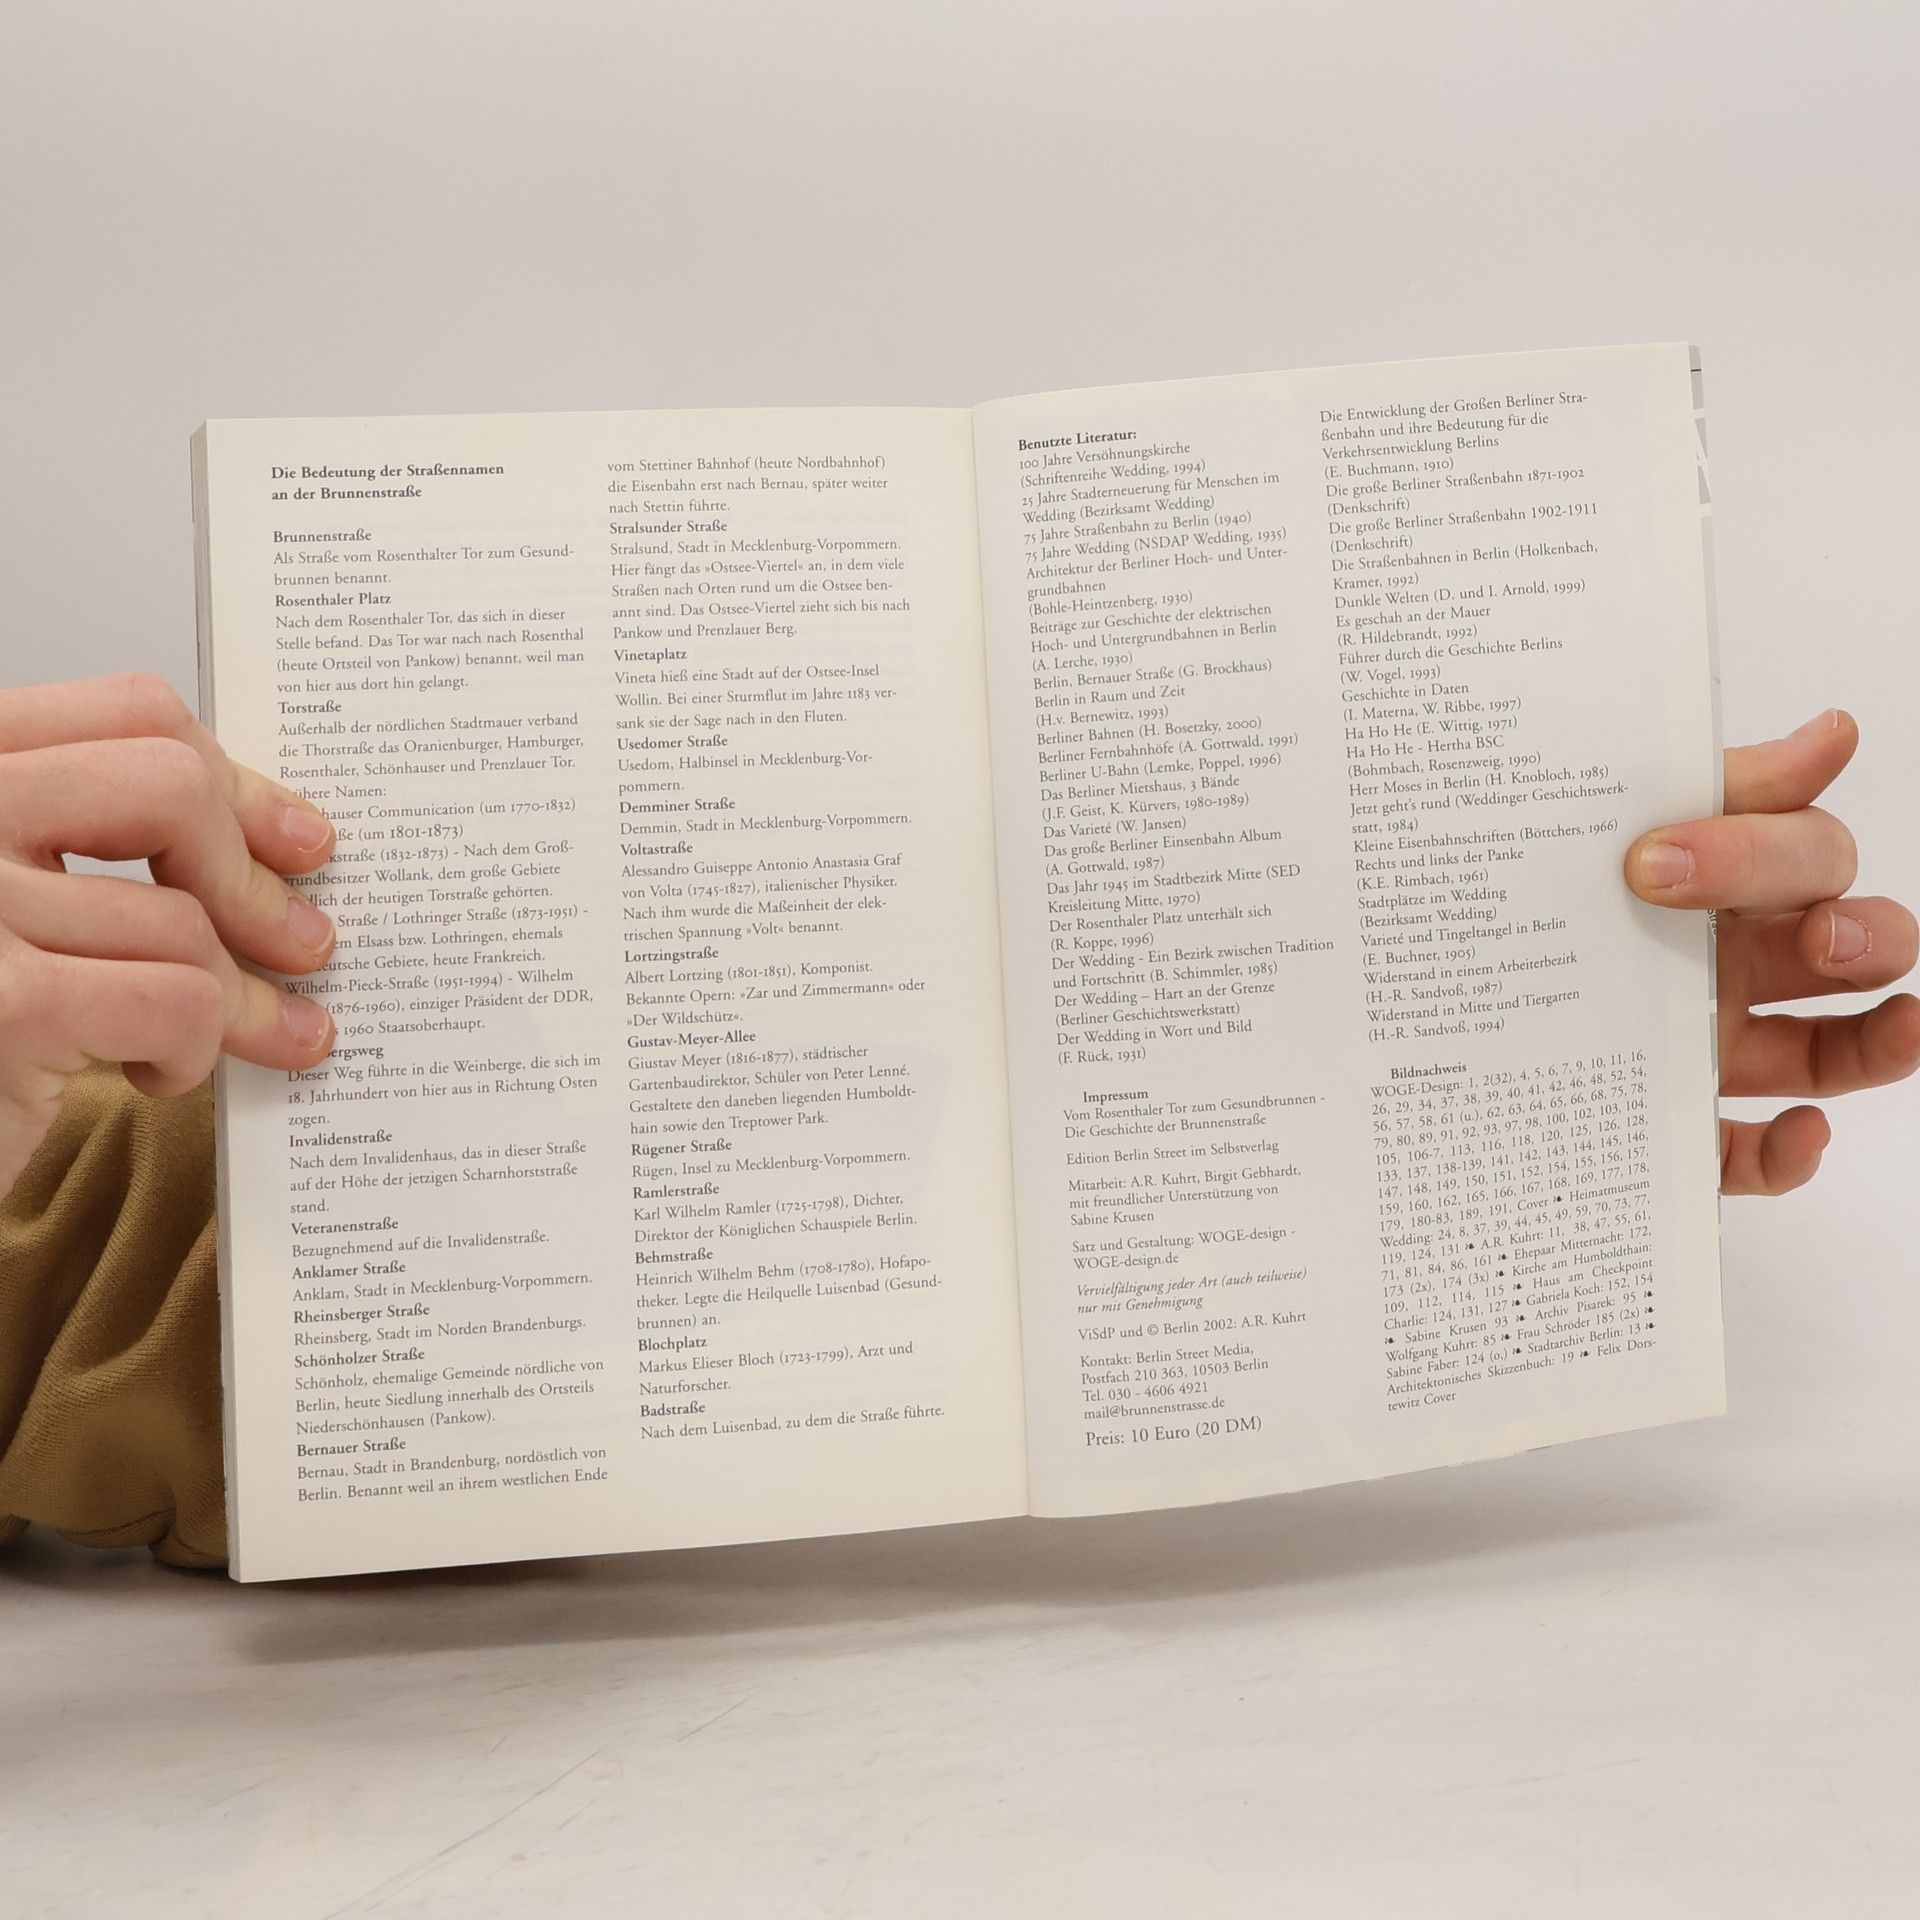 Die Bedeutung der Straßennamen
an der Brunnenstraße
Brunnenstraße
Als Straße vom Rosenthalter Tor zum Gesund-
brunnen benannt.
Rosenthaler Platz
Nach dem Rosenthaler Tor, das sich in dieser
Stelle befand. Das Tor war nach nach Rosenthal
(heute Ortsteil von Pankow) benannt, weil man
von hier aus dort hin gelangt.
Torstraße
Außerhalb der nördlichen Stadtmauer verband
die Thorstraße das Oranienburger, Hamburger,
Rosenthaler, Schönhauser und Prenzlauer Tor.
Namen:
Communication (um 1770-1832)
(um 1801-1873)
(1832-1873) - Nach dem Groß-
grundbesitzer Wollank, dem große Gebiete
der heutigen Torstraße gehörten.
Straße / Lothringer Straße (1873-1951) -
Elsass bzw. Lothringen, ehemals
Gebiete, heute Frankreich.
Wilhelm-Pieck-Straße (1951-1994) - Wilhelm
(1876-1960), einziger Präsident der DDR,
1960 Staatsoberhaupt.
Dieser Weg führte in die Weinberge, die sich im
18. Jahrhundert von hier aus in Richtung Osten
zogen.
Invalidenstraße
Nach dem Invalidenhaus, das in dieser Straße
auf der Höhe der jetzigen Scharnhorststraße
stand.
Veteranenstraße
Bezugnehmend auf die Invalidenstraße.
Anklamer Straße
Anklam, Stadt in Mecklenburg-Vorpommern.
Rheinsberger Straße
Rheinsberg, Stadt im Norden Brandenburgs.
Schönholzer Straße
Schönholz, ehemalige Gemeinde nördliche von
Berlin, heute Siedlung innerhalb des Ortsteils
Niederschönhausen (Pankow).
Bernauer Straße
Bernau, Stadt in Brandenburg, nordöstlich von
Berlin. Benannt weil an ihrem westlichen Ende
vom Stettiner Bahnhof (heute Nordbahnhof)
die Eisenbahn erst nach Bernau, später weiter
nach Stettin führte.
Stralsunder Straße
Stralsund, Stadt in Mecklenburg-Vorpommern.
Hier fängt das »Ostsee-Viertel« an, in dem viele
Straßen nach Orten rund um die Ostsee ben-
annt sind. Das Ostsee-Viertel zieht sich bis nach
Pankow und Prenzlauer Berg.
Vinetaplatz
Vineta hieß eine Stadt auf der Ostsee-Insel
Wollin. Bei einer Sturmflut im Jahre 1183 ver-
sank sie der Sage nach in den Fluten.
Usedomer Straße
Usedom, Halbinsel in Mecklenburg-Vor-
pommern.
Demminer Straße
Demmin, Stadt in Mecklenburg-Vorpommern.
Voltastraße
Alessandro Guiseppe Antonio Anastasia Graf
von Volta (1745-1827), italienischer Physiker.
Nach ihm wurde die Maßeinheit der elek-
trischen Spannung »Volt« benannt.
Lortzingstraße
Albert Lortzing (1801-1851), Komponist.
Bekannte Opern: »Zar und Zimmermann« oder
»Der Wildschütz«.
Gustav-Meyer-Allee
Giustav Meyer (1816-1877), städtischer
Gartenbaudirektor, Schüler von Peter Lenné.
Gestaltete den daneben liegenden Humboldt-
hain sowie den Treptower Park.
Rügener Straße
Rügen, Insel zu Mecklenburg-Vorpommern.
Ramlerstraße
Karl Wilhelm Ramler (1725-1798), Dichter,
Direktor der Königlichen Schauspiele Berlin.
Behmstraße
Heinrich Wilhelm Behm (1708-1780), Hofapo-
theker. Legte die Heilquelle Luisenbad (Gesund-
brunnen) an.
Blochplatz
Markus Elieser Bloch (1723-1799), Arzt und
Naturforscher.
Badstraße
Nach dem Luisenbad, zu dem die Straße führte.
Benutzte Literatur:
100 Jahre Versöhnungskirche
(Schriftenreihe Wedding, 1994)
25 Jahre Stadterneuerung für Menschen im
Wedding (Bezirksamt Wedding)
75 Jahre Straßenbahn zu Berlin (1940)
75 Jahre Wedding (NSDAP Wedding, 1935)
Architektur der Berliner Hoch- und Unter-
grundbahnen
(Bohle-Heintzenberg, 1930)
Beiträge zur Geschichte der elektrischen
Hoch- und Untergrundbahnen in Berlin
(A. Lerche, 1930)
Berlin, Bernauer Straße (G. Brockhaus)
Berlin in Raum und Zeit
(H.v. Bernewitz, 1993)
Berliner Bahnen (H. Bosetzky, 2000)
Berliner Fernbahnhöfe (A. Gottwald, 1991)
Berliner U-Bahn (Lemke, Poppel, 1996)
Das Berliner Mietshaus, 3 Bände
(J.F. Geist, K. Kürvers, 1980-1989)
Das Varieté (W. Jansen)
Das große Berliner Einsenbahn Album
(A. Gottwald, 1987)
Das Jahr 1945 im Stadtbezirk Mitte (SED
Kreisleitung Mitte, 1970)
Der Rosenthaler Platz unterhält sich
(R. Koppe, 1996)
Der Wedding - Ein Bezirk zwischen Tradition
und Fortschritt (B. Schimmler, 1985)
Der Wedding – Hart an der Grenze
(Berliner Geschichtswerkstatt)
Der Wedding in Wort und Bild
(F. Rück, 1931)
Impressum
Vom Rosenthaler Tor zum Gesundbrunnen -
Die Geschichte der Brunnenstraße
Edition Berlin Street im Selbstverlag
Mitarbeit: A.R. Kuhrt, Birgit Gebhardt,
mit freundlicher Unterstützung von
Sabine Krusen
Satz und Gestaltung: WOGE-design -
WOGE-design.de
Vervielfältigung jeder Art (auch teilweise)
nur mit Genehmigung
ViSdP und © Berlin 2002: A.R. Kuhrt
Kontakt: Berlin Street Media,
Postfach 210 363, 10503 Berlin
Tel. 030 - 4606 4921
mail@brunnenstrasse.de
Preis: 10 Euro (20 DM)
Die Entwicklung der Großen Berliner Stra-
ßenbahn und ihre Bedeutung für die
Verkehrsentwicklung Berlins
(E. Buchmann, 1910)
Die große Berliner Straßenbahn 1871-1902
(Denkschrift)
Die große Berliner Straßenbahn 1902-1911
(Denkschrift)
Die Straßenbahnen in Berlin (Holkenbach,
Kramer, 1992)
Dunkle Welten (D. und I. Arnold, 1999)
Es geschah an der Mauer
(R. Hildebrandt, 1992)
Führer durch die Geschichte Berlins
(W. Vogel, 1993)
Geschichte in Daten
(I. Materna, W. Ribbe, 1997)
Ha Ho He (E. Wittig, 1971)
Ha Ho He - Hertha BSC
(Bohmbach, Rosenzweig, 1990)
Herr Moses in Berlin (H. Knobloch, 1985)
Jetzt geht's rund (Weddinger Geschichtswerk-
statt, 1984)
Kleine Eisenbahnschriften (Böttchers, 1966)
Rechts und links der Panke
(K.E. Rimbach, 1961)
Stadtplätze im Wedding
(Bezirksamt Wedding)
Varieté und Tingeltangel in Berlin
(E. Buchner, 1905)
Widerstand in einem Arbeiterbezirk
(H.-R. Sandvoß, 1987)
Widerstand in Mitte und Tiergarten
(H.-R. Sandvoß, 1994)
Bildnachweis
WOGE-Design: 1, 2(32), 4, 5, 6, 7, 9, 10, 11, 16,
26, 29, 34, 37, 38, 39, 40, 41, 42, 46, 48, 52, 54,
56, 57, 58, 61 (u.), 62, 63, 64, 65, 66, 68, 75, 78,
79, 80, 89, 91, 92, 93, 97, 98, 100, 102, 103, 104,
105, 106-7, 113, 116, 118, 120, 125, 126, 128,
133, 137, 138-139, 141, 142, 143, 144, 145, 146,
147, 148, 149, 150, 151, 152, 154, 155, 156, 157,
159, 160, 162, 165, 166, 167, 168, 169, 177, 178,
179, 180-83, 189, 191, Cover ❧ Heimatmuseum
Wedding: 24, 8, 37, 39, 44, 45, 49, 59, 70, 73, 77,
119, 124, 131 ❧ A.R. Kuhrt: 11, 38, 47, 55, 61,
71, 81, 84, 86, 161 ❧ Ehepaar Mitternacht: 172,
173 (2x), 174 (3x) ❧ Kirche am Humboldthain:
109, 112, 114, 115 ❧ Haus am Checkpoint
Charlie: 124, 131, 127 ❧ Gabriela Koch: 152, 154
❧ Sabine Krusen 93 ❧ Archiv Pisarek: 95 ❧
Wolfgang Kuhrt: 85 ❧ Frau Schröder 185 (2x) ❧
Sabine Faber: 124 (o,) ❧ Stadtarchiv Berlin: 13 ❧
Architektonisches Skizzenbuch: 19 ❧ Felix Dors-
tewitz Cover